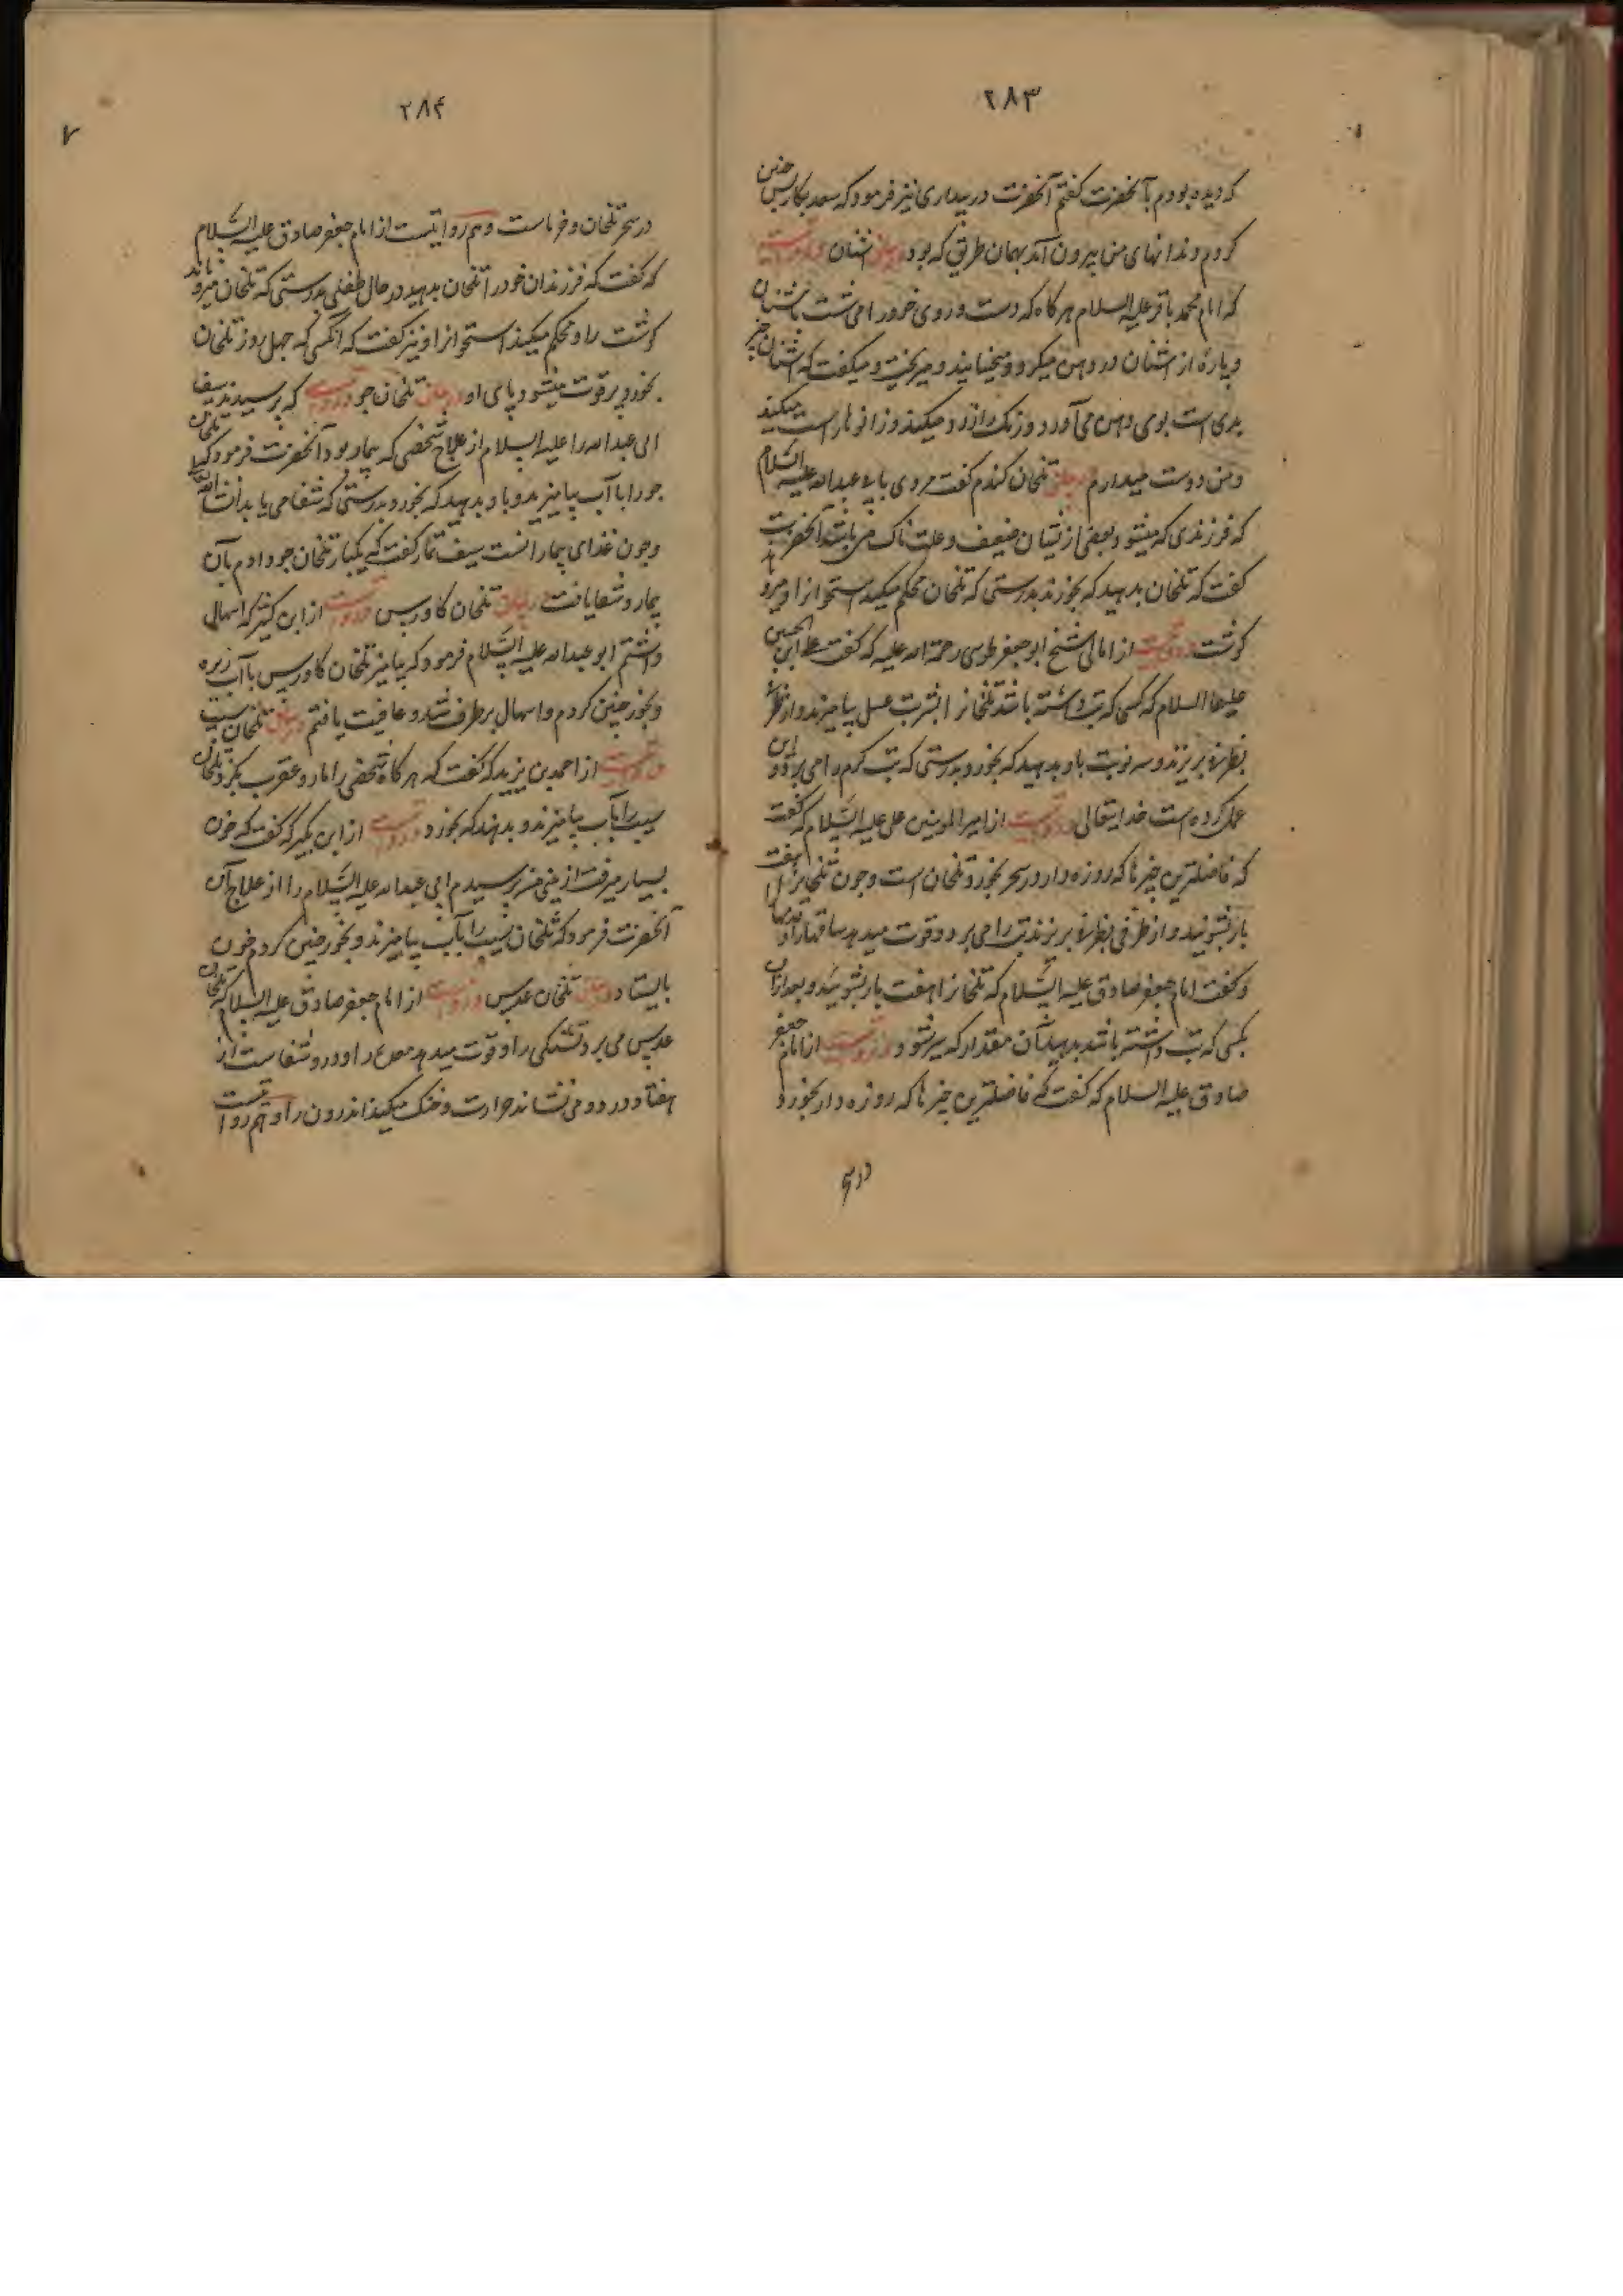 ۲۸۳
که دیده بودم بآنحضرت گفتم آنحضرت در بیداری نیز فرمود که سعد بکار بس چنین
کردم دندانهای من بیرون آمد بهمان طریق که بود در بیان اشنان و روایتست
که امام محمد باقر علیه السلام هرگاه که دست و روی خود را می شست باشنان
و پارۀ از اشنان در دهن میکرد و میخنایند و میریخت و میگفت که اشنان چیز
بدی است بوی دهن می آورد و رنگ را زرد میکند و زانو را سست میکند
و من دوست میدارم در بیان تلخان کندم گفت مردی بابی عبدالله علیه السلام
که فرزندی که میشود بعضی از ایشان ضعیف و علت ناک می باشند آنحضرت
گفت که تلخان بدهید که بخورند بدرستی که تلخان محکم میکند استخوانرا و میرویاند
گوشت و روایتست از امالی شیخ ابو جعفر طوسی رحمة الله علیه که گفت علی ابن الحسین
علیهما السلام که کسی که تب داشته باشد تلخانرا بشربت عسل بیامیزند و از ظرفی
بظرفی بریزند و سه نوبت باو بدهید که بخورد بدرستی که تب گرم را می برد و این
عمل کرده است خدایتعالی و روایتست از امیر المومنین علی علیه السلام که گفت
که فاضلترین چیزها که روزه دار در سحر بخورد تلخان است و چون تلخانرا هفت
بار بشوئید و از ظرفی بظرفی بریزند تب را می برد و قوت میدهد ساقها را و قدمها
و گفت امام جعفر صادق علیه السلام که تلخانرا هفت بار بشوئید و بعد از ان
بکسی که تب داشته باشد بدهید آن مقدار که سیر شود و روایتست از امام جعفر
صادق علیه السلام که گفت که فاضلترین چیزها که روزه دار بخورد
در سحر
۲۸۴
در سحر تلخان و خرماست و هم روایتست از امام جعفر صادق علیه السلام
که گفت که فرزندان خود را تلخان بدهید در حال طفلی بدرستی که تلخان میرویاند
گوشت را و محکم میکند استخوانرا و نیز گفت که آنکسی که چهل روز تلخان
بخورد پر قوت میشود پای او در بیان تلخان جو و روایتست که پرسید سیف
ابی عبدالله را علیه السلام از علاج شخصی که بیمار بود آنحضرت فرمود که تلخان
جو را با آب بیامیزید و باو بدهید که بخورد بدرستی که شفا می یابد انشاء الله
و چون غذای بیمار انست سیف تمار گفت که یکبار تلخان جو دادم بآن
بیمار و شفا یافت در بیان تلخان کاورس و روایتست از ابن کثیر که اسهال
داشتم ابو عبدالله علیه السلام فرمود که بیامیز تلخان کاورس با آب زیره
و بخور چنین کردم و اسهال برطرف شد و عافیت یافتم در بیان تلخان سیب
و روایتست از احمد بن یزید که گفت که هرگاه شخصی را مار و عقرب بگزد تلخان
سیب را بآب بیامیزند و بدهند که بخورد و روایتست از ابن بکیر که گفت که خون
بسیار میرفت از بینی من پرسیدم ابی عبدالله علیه السلام را از علاج آن
آنحضرت فرمود که تلخان سیب را بآب بیامیزند و بخور چنین کردم خون
بایستاد در بیان تلخان عدس و روایتست از امام جعفر صادق علیه السلام که تلخان
عدس می برد تشنگی را و قوت میدهد معده را و در و شفاست از
هفتاد درد و می نشاند حرارت و خنک میکند اندرون را و هم روایتست